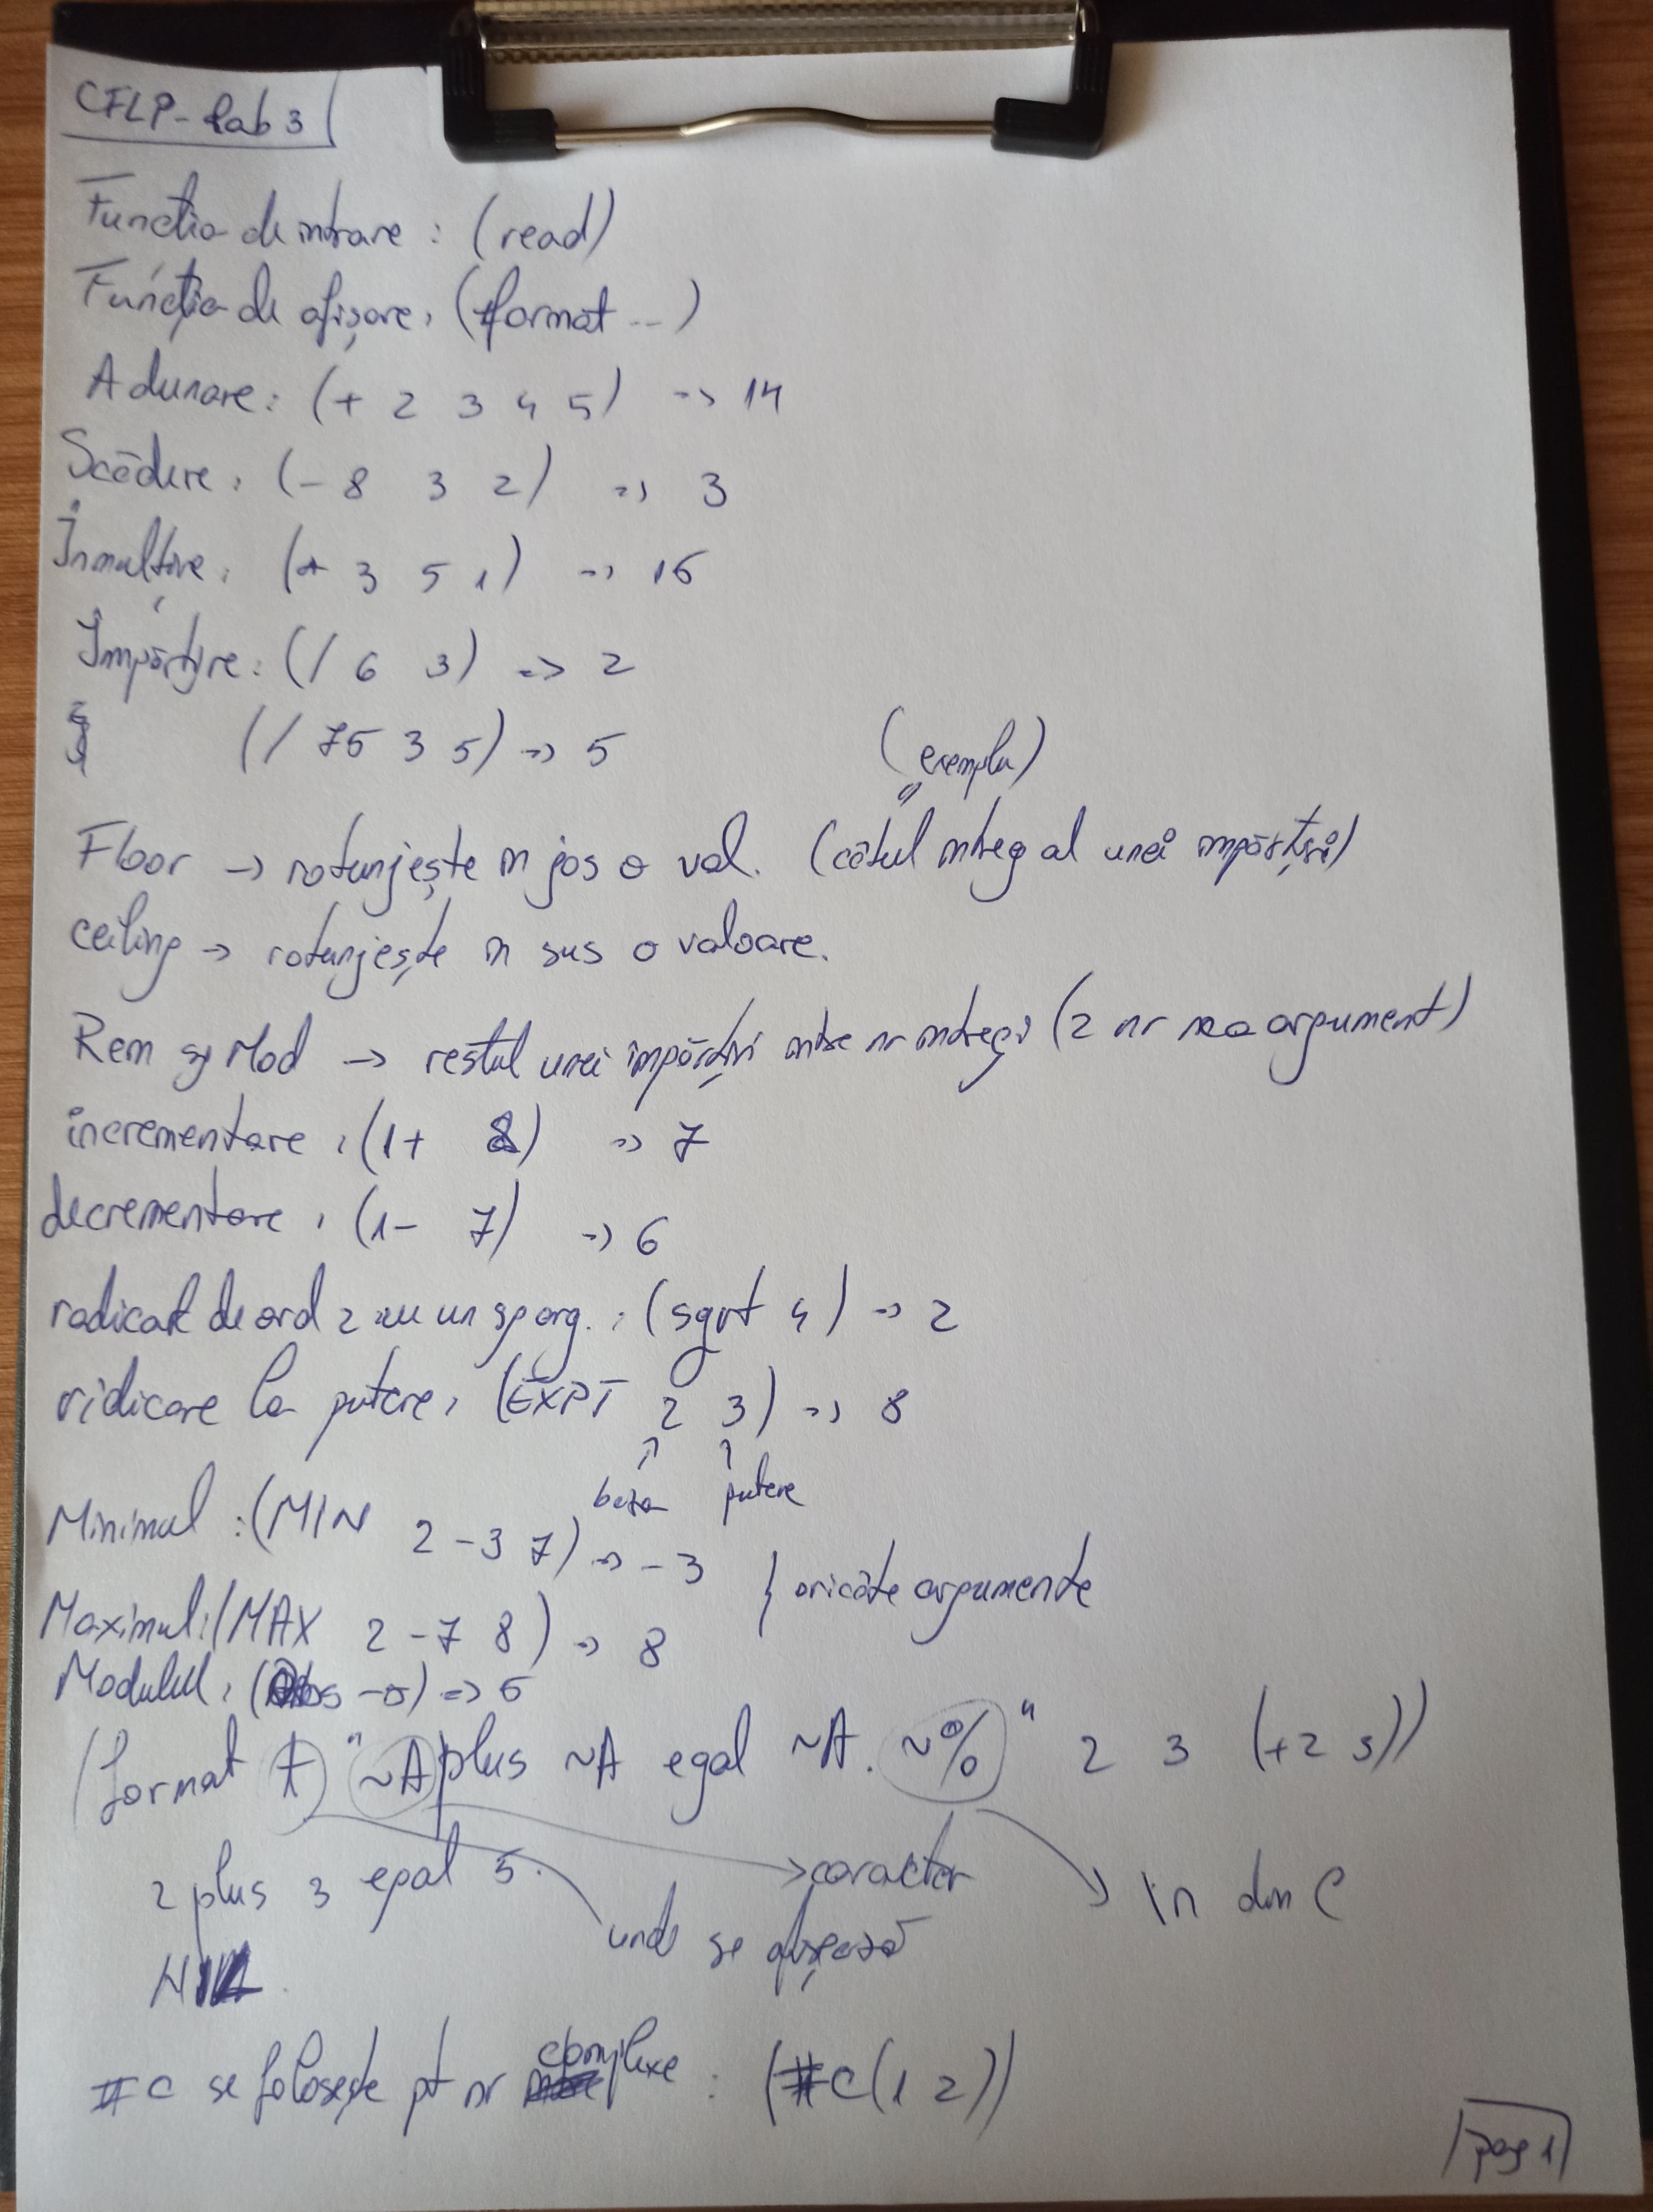 CFLP - Lab 3
Funcția de intrare : (read)
Funcția de afișare : (format ...)
Adunare : (+ 2 3 4 5) => 14
Scădere : (- 8 3 2) => 3
Înmulțire : (* 3 5 1) => 15
Împărțire : (/ 6 3) => 2
(/ 75 3 5) => 5
(exemplu)
Floor -> rotunjește în jos o val. (câtul întreg al unei împărțiri)
ceiling -> rotunjește în sus o valoare.
Rem și Mod -> restul unei împărțiri între nr întregi (2 nr ca argument)
incrementare : (1+ ) => 7
decrementare : (1- 7) => 6
radical de ord 2 cu un sg arg. : (sqrt 4) => 2
ridicare la putere : (EXPT 2 3) => 8
baza putere
Minimul : (MIN 2 -3 7) => -3
} oricâte argumente
Maximul : (MAX 2 -7 8) => 8
Modulul : (Abs -5) => 5
(format t "~A plus ~A egal ~A. ~%" 2 3 (+ 2 3))
2 plus 3 egal 5.
-> caracter
\n din C
unde se afișează
#C se folosește pt nr complexe : (#C(1 2))
pag 1